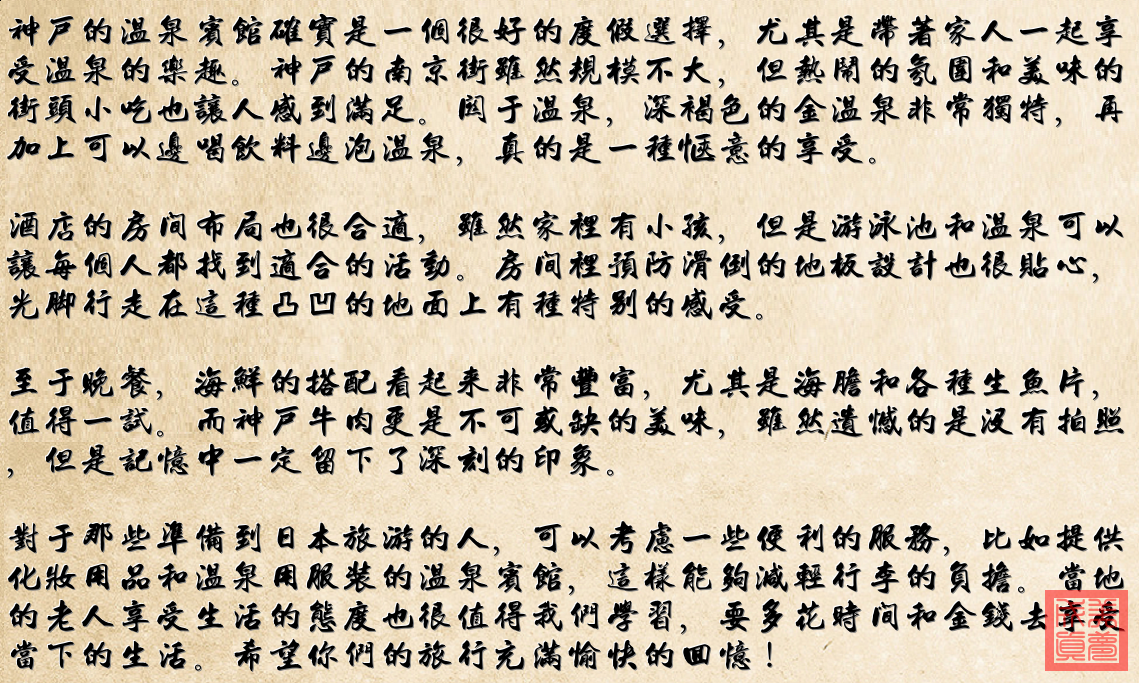 神戸的溫泉賓館確實是一個很好的度假選擇，尤其是帶著家人一起享
受溫泉的樂趣。神戸的南京街雖然規模不大，但熱鬧的氛圍和美味的
街頭小吃也讓人感到滿足。関于溫泉，深褐色的金溫泉非常獨特，再
加上可以邊喝飲料邊泡溫泉，真的是一種愜意的享受。
酒店的房间布局也很合適，雖然家裡有小孩，但是游泳池和溫泉可以
讓每個人都找到適合的活動。房间裡預防滑倒的地板設計也很貼心，
光脚行走在這種凸凹的地面上有種特别的感受。
至于晚餐，海鮮的搭配看起来非常豐富，尤其是海膽和各種生魚片，
值得一試。而神戸牛肉更是不可或缺的美味，雖然遺憾的是没有拍照
，但是記憶中一定留下了深刻的印象。
對于那些準備到日本旅游的人，可以考慮一些便利的服務，比如提供
化妝用品和溫泉用服裝的溫泉賓館，這樣能夠減輕行李的負擔。當地
的老人享受生活的態度也很值得我們學習，要多花時间和金錢去享受
當下的生活。希望你們的旅行充滿愉快的回憶！